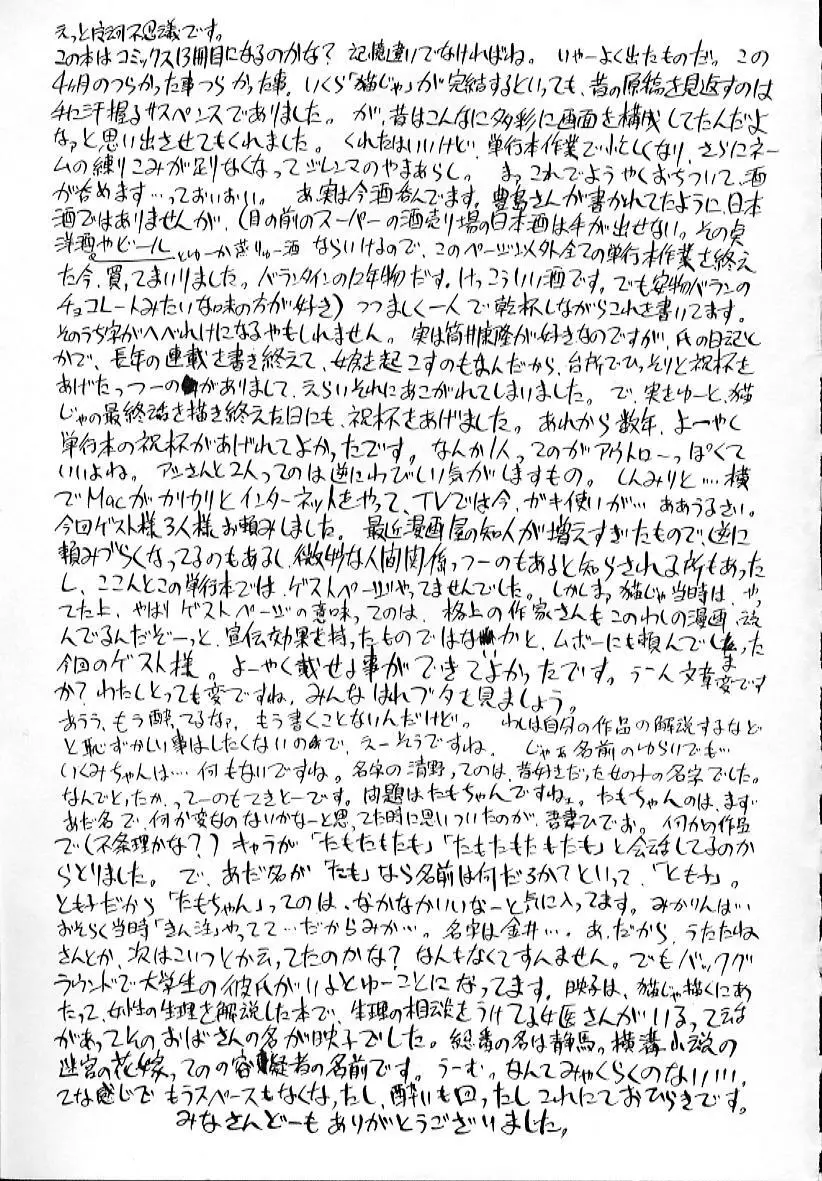 えっと皮詞不思議です。
この本はコミックス13冊目になるのかな? 記憶違いでなければね。 いやーよく出たものだ。 この
4ヶ月のつらかった事つらかった事。いくら「猫じゃ」が完結するといっても、昔の原稿を見返すのは
手に汗握るサスペンスでありました。 が、昔はこんなに多彩に画面を構成してたんだよ
なァと思い出させてもくれました。 くれたはいいけど、単行本作業で忙しくなり、さらにネー
ムの練りこみが足りなくなってジレンマのやまあらし。 まっこれでようやくおちついて、酒
が呑めます…っておいおい。 あ、実は今酒呑んでます。豊島さんが書かれてたように、日本
酒ではありませんが、(目の前のスーパーの酒売り場の日本酒は手が出せない。その点
洋酒やビールとゆーか蒸りゅー酒 ならいけるので、このページ以外全ての単行本作業を終え
た今、買ってまいりました。バランタインの12年物だす。けっこういい酒です。でも安物バランの
チョコレートみたいな味の方が好き)つつましく一人で乾杯しながらこれを書いてます。
そのうち字がへべれけになるやもしれません。 実は筒井康隆が好きなのですが、氏の日記と
かで、長年の連載を書き終えて、女房を起こすのもなんだから、台所でひっそりと祝杯を
あげたっつーのがありまして、えらいそれにあこがれてしまいました。 で、実をゆーと、猫
じゃの最終話を描き終えた日にも、祝杯をあげました。 あれから数年、よーやく
単行本の祝杯があげれてよかったです。 なんか1人ってのがアウトローっぽくて
いいよね。 アシさんと2人ってのは逆にわびしい気がしますもの。 しんみりと…。横
でMacがカリカリとインターネットをやって、TVでは今、ガキ使いが… ああうるさい。
今回ゲスト様3人様、お頼みしました。 最近漫画屋の知人が増えすぎたもので、逆に
頼みづらくなってるのもあるし、微妙な人間関係っつーのもあると知らされる所もあった
し、ここんとこの単行本では、ゲストページやってませんでした。しかしまァ猫じゃ当時は、やっ
てた上、やはりゲストページの意味ってのは、格上の作家さんもこのわしの漫画、読
んでるんだぞーっと、宣伝効果を持ったものではないかと、ムボーにも頼んでしまった
今回のゲスト様。 よーやく載せる事ができてよかったです。 うーん文章変です
か?わたしとっても変ですね、みんなはれブタを見ましょう。
あうう、もう酔ってるなァ、もう書くことないんだけど。 わしは自分の作品の解説するなど
と恥ずかしい事はしたくないので、えーそうですね、 じゃあ名前のゆらいでも…
いくみちゃんは… 何もないですね。名字の清野ってのは、昔好きだった女の子の名字でした。
なんでとったか、ってーのもてきとーです。問題はたもちゃんですねェ。たもちゃんのは、まず
あだ名で、何か変なのないかなーと思ってた時に思いついたのが、吾妻ひでお。何かの作品
で(不条理かな?) キャラが「たもたもたも」「たもたもたもたも」と会話してるのか
らとりました。 で、あだ名が「たも」なら名前は何だろかてといって、「とも子」。
とも子だから「たもちゃん」ってのは、なかなかいいなーと気に入ってます。 みかりんは…
おそらく当時「きん注」やってて…だからみか…。名字は金井…。あ、だから、うたたね
さんとか、次はこいつとか云ってたのかな? なんもなくてすんません。でもバックグ
ラウンドで大学生の彼氏がいるとゆーことになってます。 映子は、猫じゃ描くにあ
たって、女性の生理を解説した本で、生理の相談をうけてる女医さんがいるって話
があってそのおばさんの名が映子でした。 総番の名は静馬っ。横溝小説の
迷宮の花嫁ってのの容疑者の名前です。 うーむっなんてみゃくらくのない!!!、
てな感じで もうスペースもなくなったし、酔いも回ったし これにておひらきです。
みなさんどーも ありがとうございました。